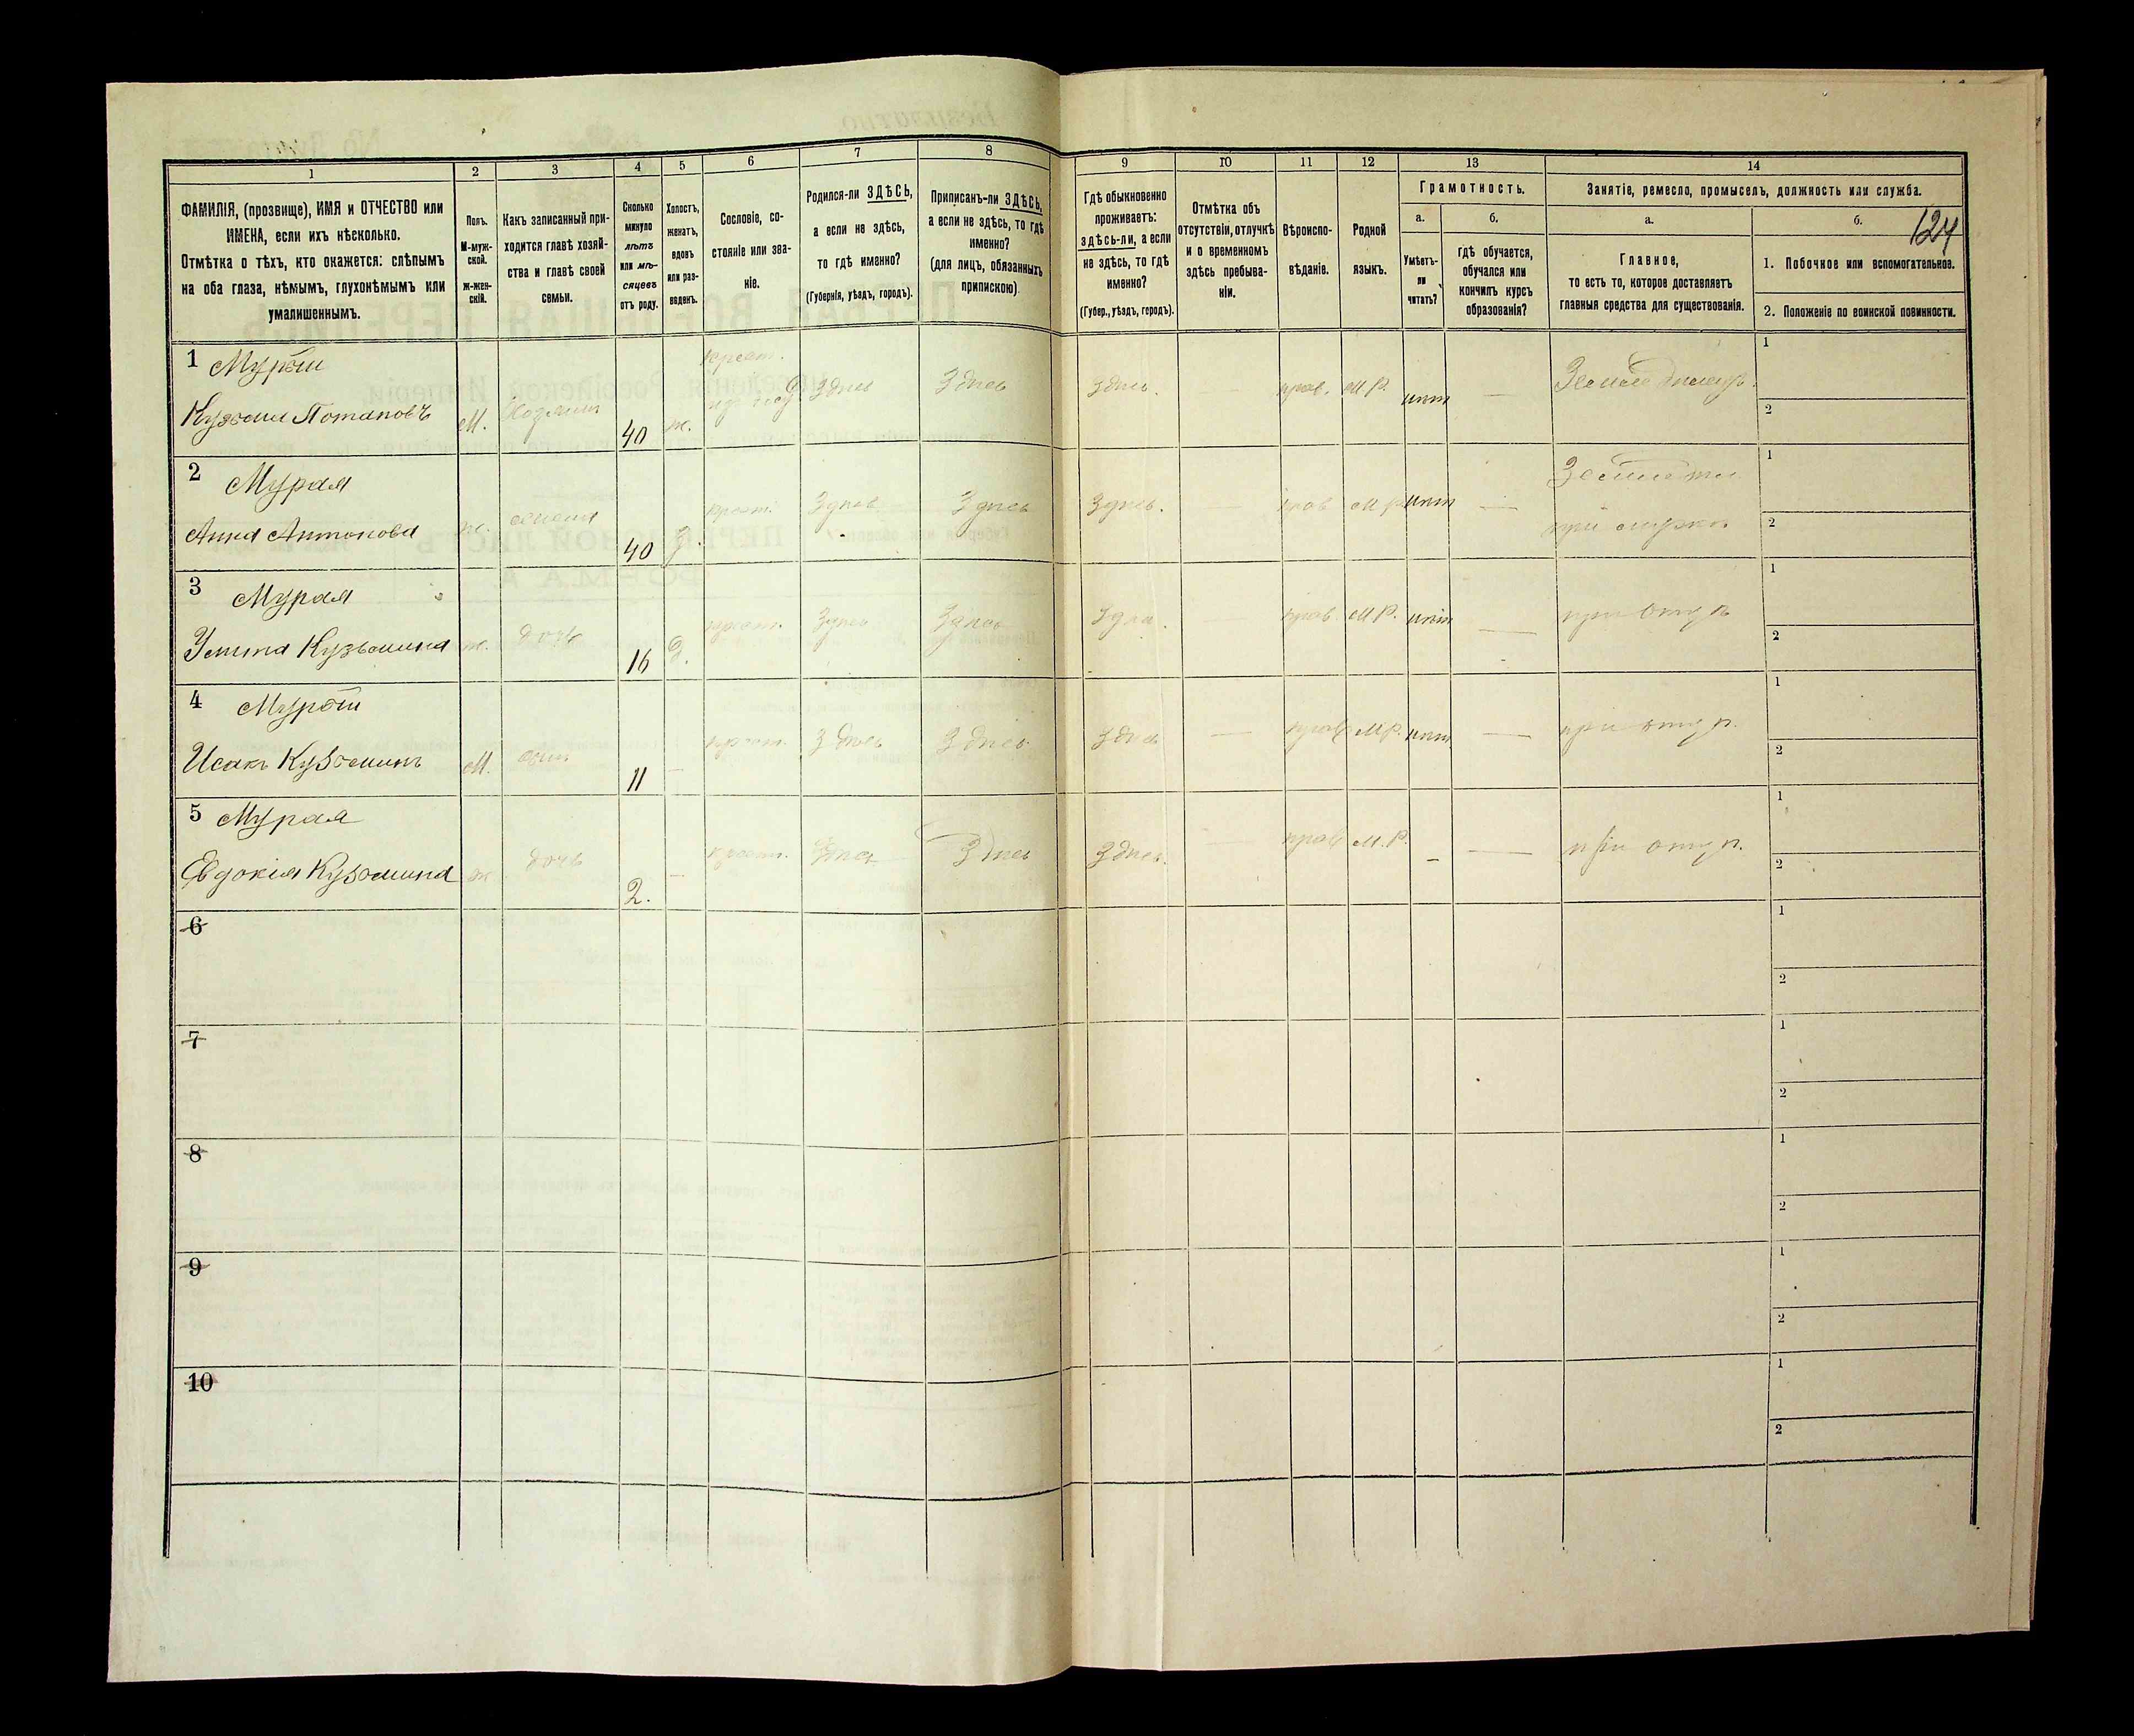 124
1
2
3
4
5
6
7
8
9
10
11
12
13
14
ФАМИЛІЯ, (прозвище), ИМЯ и ОТЧЕСТВО или
ИМЕНА, если ихъ нѣсколько.
Отмѣтка о тѣхъ, кто окажется: слѣпымъ
на оба глаза, нѣмымъ, глухонѣмымъ или
умалишеннымъ.
Полъ.
М-муж-
ской.
Ж-жен-
скій.
Какъ записанный при-
ходится главѣ хозяй-
ства и главѣ своей
семьи.
Сколько
минуло
лѣтъ
или мѣ-
сяцевъ
отъ роду.
Холостъ,
женатъ,
вдовъ
или раз-
веденъ.
Сословіе, со-
стояніе или зва-
ніе.
Родился-ли ЗДѢСЬ,
а если не здѣсь,
то гдѣ именно?
(Губернія, уѣздъ, городъ).
Приписанъ-ли ЗДѢСЬ,
а если не здѣсь, то гдѣ
именно?
(для лицъ, обязанныхъ
припискою)
Гдѣ обыкновенно
проживаетъ:
здѣсь-ли, а если
не здѣсь, то гдѣ
именно?
(Губер., уѣздъ, городъ).
Отмѣтка объ
отсутствіи, отлучкѣ
и о временномъ
здѣсь пребыва-
ніи.
Вѣроиспо-
вѣданіе.
Родной
языкъ.
Грамотность.
а.
Умѣетъ-
ли
читать?
б.
гдѣ обучается,
обучался или
кончилъ курсъ
образованія?
Занятіе, ремесло, промыселъ, должность или служба.
а.
Главное,
то есть то, которое доставляетъ
главныя средства для существованія.
б.
1. Побочное или вспомогательное.
2. Положеніе по воинской повинности.
1
Кузьма Потаповъ
М.
Хозяинъ
40
ж.
крест.
Здѣсь
Здѣсь
здѣсь.
прав.
М.Р.
нѣт
—
1
2
2 Мурая
Анна Антонова
ж.
жена
40
крест.
Здѣсь
Здѣсь
Здѣсь.
прав
М.Р.
нѣт
—
при мужѣ
1
2
3 Мурая
Кузьмина
ж.
дочь
16
крест.
Здѣсь
Здѣсь
прав.
М.Р.
нѣт
—
при отцѣ
1
2
4
Исакъ Кузьминъ
М.
сынъ
11
—
крест.
Здѣсь
Здѣсь
Здѣсь
прав
М.Р.
нѣт
—
при отцѣ.
1
2
5 Мурая
Евдокія Кузьмина
ж
дочь
2.
—
крест.
Здѣсь
Здѣсь
Здѣсь.
прав
М.Р.
-
—
при отцѣ.
1
2
6
1
2
7
1
2
8
1
2
9
1
2
10
1
2